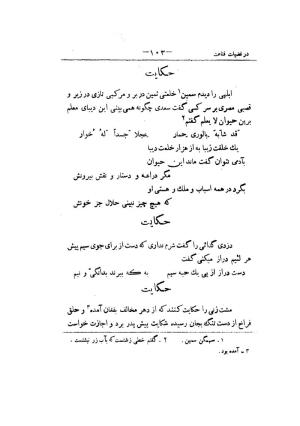 در فضیلت قناعت
— ۱۰۳ —
حکایت
ابلهی را دیدم سمین۱ خلعتی ثمین در بر و مرکبی تازی در زیر و
قصبی مصری بر سر کسی گفت سعدی چگونه همی بینی این دیبای معلم
برین حیوان لا یعلم گفتم۲
قد شابه بالوری حمار عجلا جسداً له خوار
یك خلقت زیبا به از هزار خلعت دیبا
بآدمی نتوان گفت ماند این حیوان
مگر دراعه و دستار و نقش بیرونش
بگرد در همه اسباب و ملك و هستی او
که هیچ چیز نبینی حلال جز خونش
حکایت
دزدی گدائی را گفت شرم نداری که دست از برای جوی سیم پیش
هر لئیم دراز میکنی گفت
دست دراز از پی یك حبه سیم به که ببرند بدانگی و نیم
حکایت
مشت زنی را حکایت کنند که از دهر مخالف بفغان آمده۳ و حلق
فراخ از دست تنگ بجان رسیده شکایت پیش پدر برد و اجازت خواست
۱ - سیمگن سمین . ۲ - گفتم خطی زشتست که بآب زر نبشتست .
۳ - آمده بود.